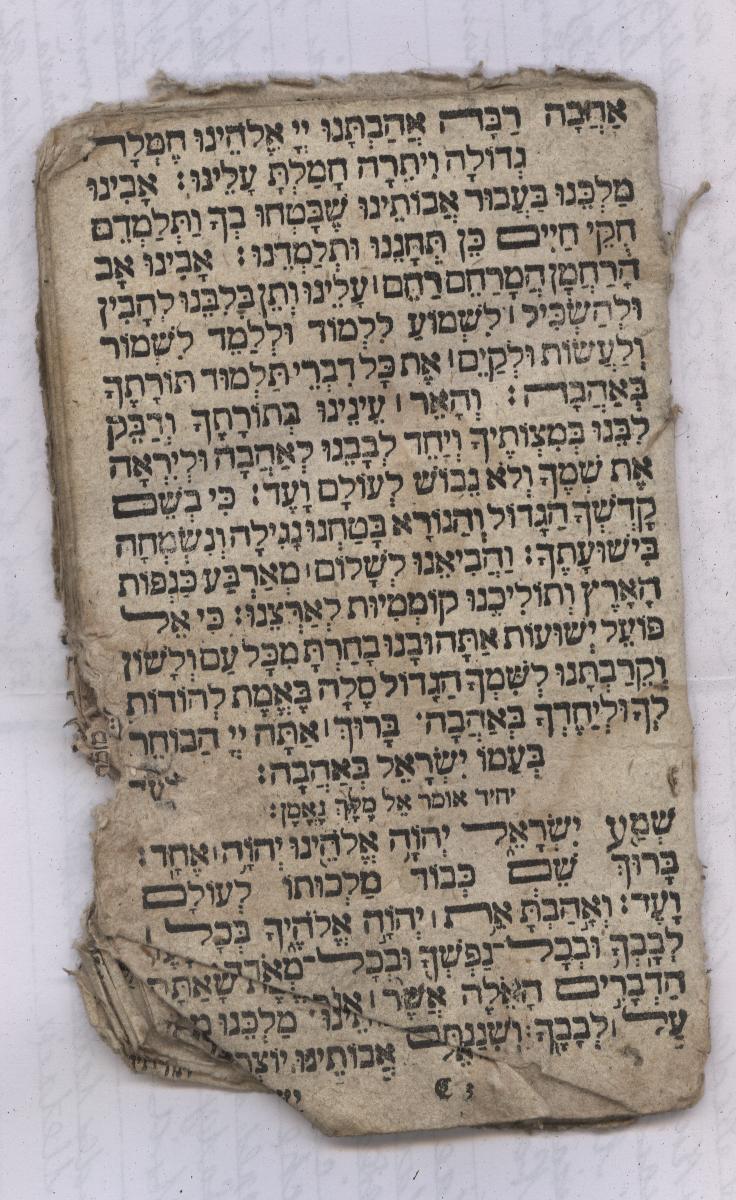 אַהֲבָה רַבָּה אֲהַבְתָּנוּ יְיָ אֱלֹהֵינוּ חֶמְלָה
גְדוֹלָה וִיתֵרָה חָמַלְתָּ עָלֵינוּ: אָבִינוּ
מַלְכֵּנוּ בַּעֲבוּר אֲבוֹתֵינוּ שֶׁבָּטְחוּ בְךָ וַתְּלַמְּדֵם
חֻקֵּי חַיִּים כֵּן תְּחָנֵּנוּ וּתְלַמְּדֵנוּ: אָבִינוּ אָב
הָרַחֲמָן הַמְרַחֵם רַחֵם׀ עָלֵינוּ וְתֵן בְּלִבֵּנוּ לְהָבִין
וּלְהַשְׂכִּיל׀ לִשְׁמוֹעַ לִלְמוֹד וּלְלַמֵּד לִשְׁמוֹר
וְלַעֲשׂוֹת וּלְקַיֵּם׀ אֶת כָּל דִּבְרֵי תַלְמוּד תּוֹרָתֶךָ
בְּאַהֲבָה: וְהָאֵר׀ עֵינֵינוּ בְּתוֹרָתֶךָ וְדַבֵּק
לִבֵּנוּ בְּמִצְוֹתֶיךָ וְיַחֵד לְבָבֵנוּ לְאַהֲבָה וּלְיִרְאָה
אֶת שְׁמֶךָ וְלֹא נֵבוֹשׁ לְעוֹלָם וָעֶד: כִּי בְשֵׁם
קָדְשְׁךָ הַגָּדוֹל וְהַנּוֹרָא בָּטָחְנוּ נָגִילָה וְנִשְׂמְחָה
בִּישׁוּעָתֶךָ: וַהֲבִיאֵנוּ לְשָׁלוֹם׀ מֵאַרְבַּע כַּנְפוֹת
הָאָרֶץ וְתוֹלִיכֵנוּ קוֹמְמִיּוּת לְאַרְצֵנוּ: כִּי אֵל
פּוֹעֵל יְשׁוּעוֹת אַתָּה וּבָנוּ בָחַרְתָּ מִכָּל עַם וְלָשׁוֹן
וְקֵרַבְתָּנוּ לְשִׁמְךָ הַגָּדוֹל סֶלָה בֶּאֱמֶת לְהוֹדוֹת
לְךָ וּלְיַחֶדְךָ בְּאַהֲבָה׃ בָּרוּךְ׀ אַתָּה יְיָ הַבּוֹחֵר
בְּעַמּוֹ יִשְׂרָאֵל בְּאַהֲבָה:
יחיד אומר אֵל מֶלֶךְ נֶאֱמָן:
שְׁמַע יִשְׂרָאֵל יְהֹוָה אֱלֹהֵינוּ יְהֹוָה׀ אֶחָד:
בָּרוּךְ שֵׁם כְּבוֹד מַלְכוּתוֹ לְעוֹלָם
וָעֶד: וְאָהַבְתָּ אֵת׀ יְהֹוָה אֱלֹהֶיךָ בְּכָל׀
לְבָבְךָ וּבְכָל־נַפְשְׁךָ וּבְכָל־מְאֹדֶךָ
הַדְּבָרִים הָאֵלֶּה אֲשֶׁר׀
עַל׀ לְבָבֶךָ: וְשִׁנַּנְתָּם מַלְכֵּנוּ
אֲבוֹתֵינוּ יוֹצֵר
C 3